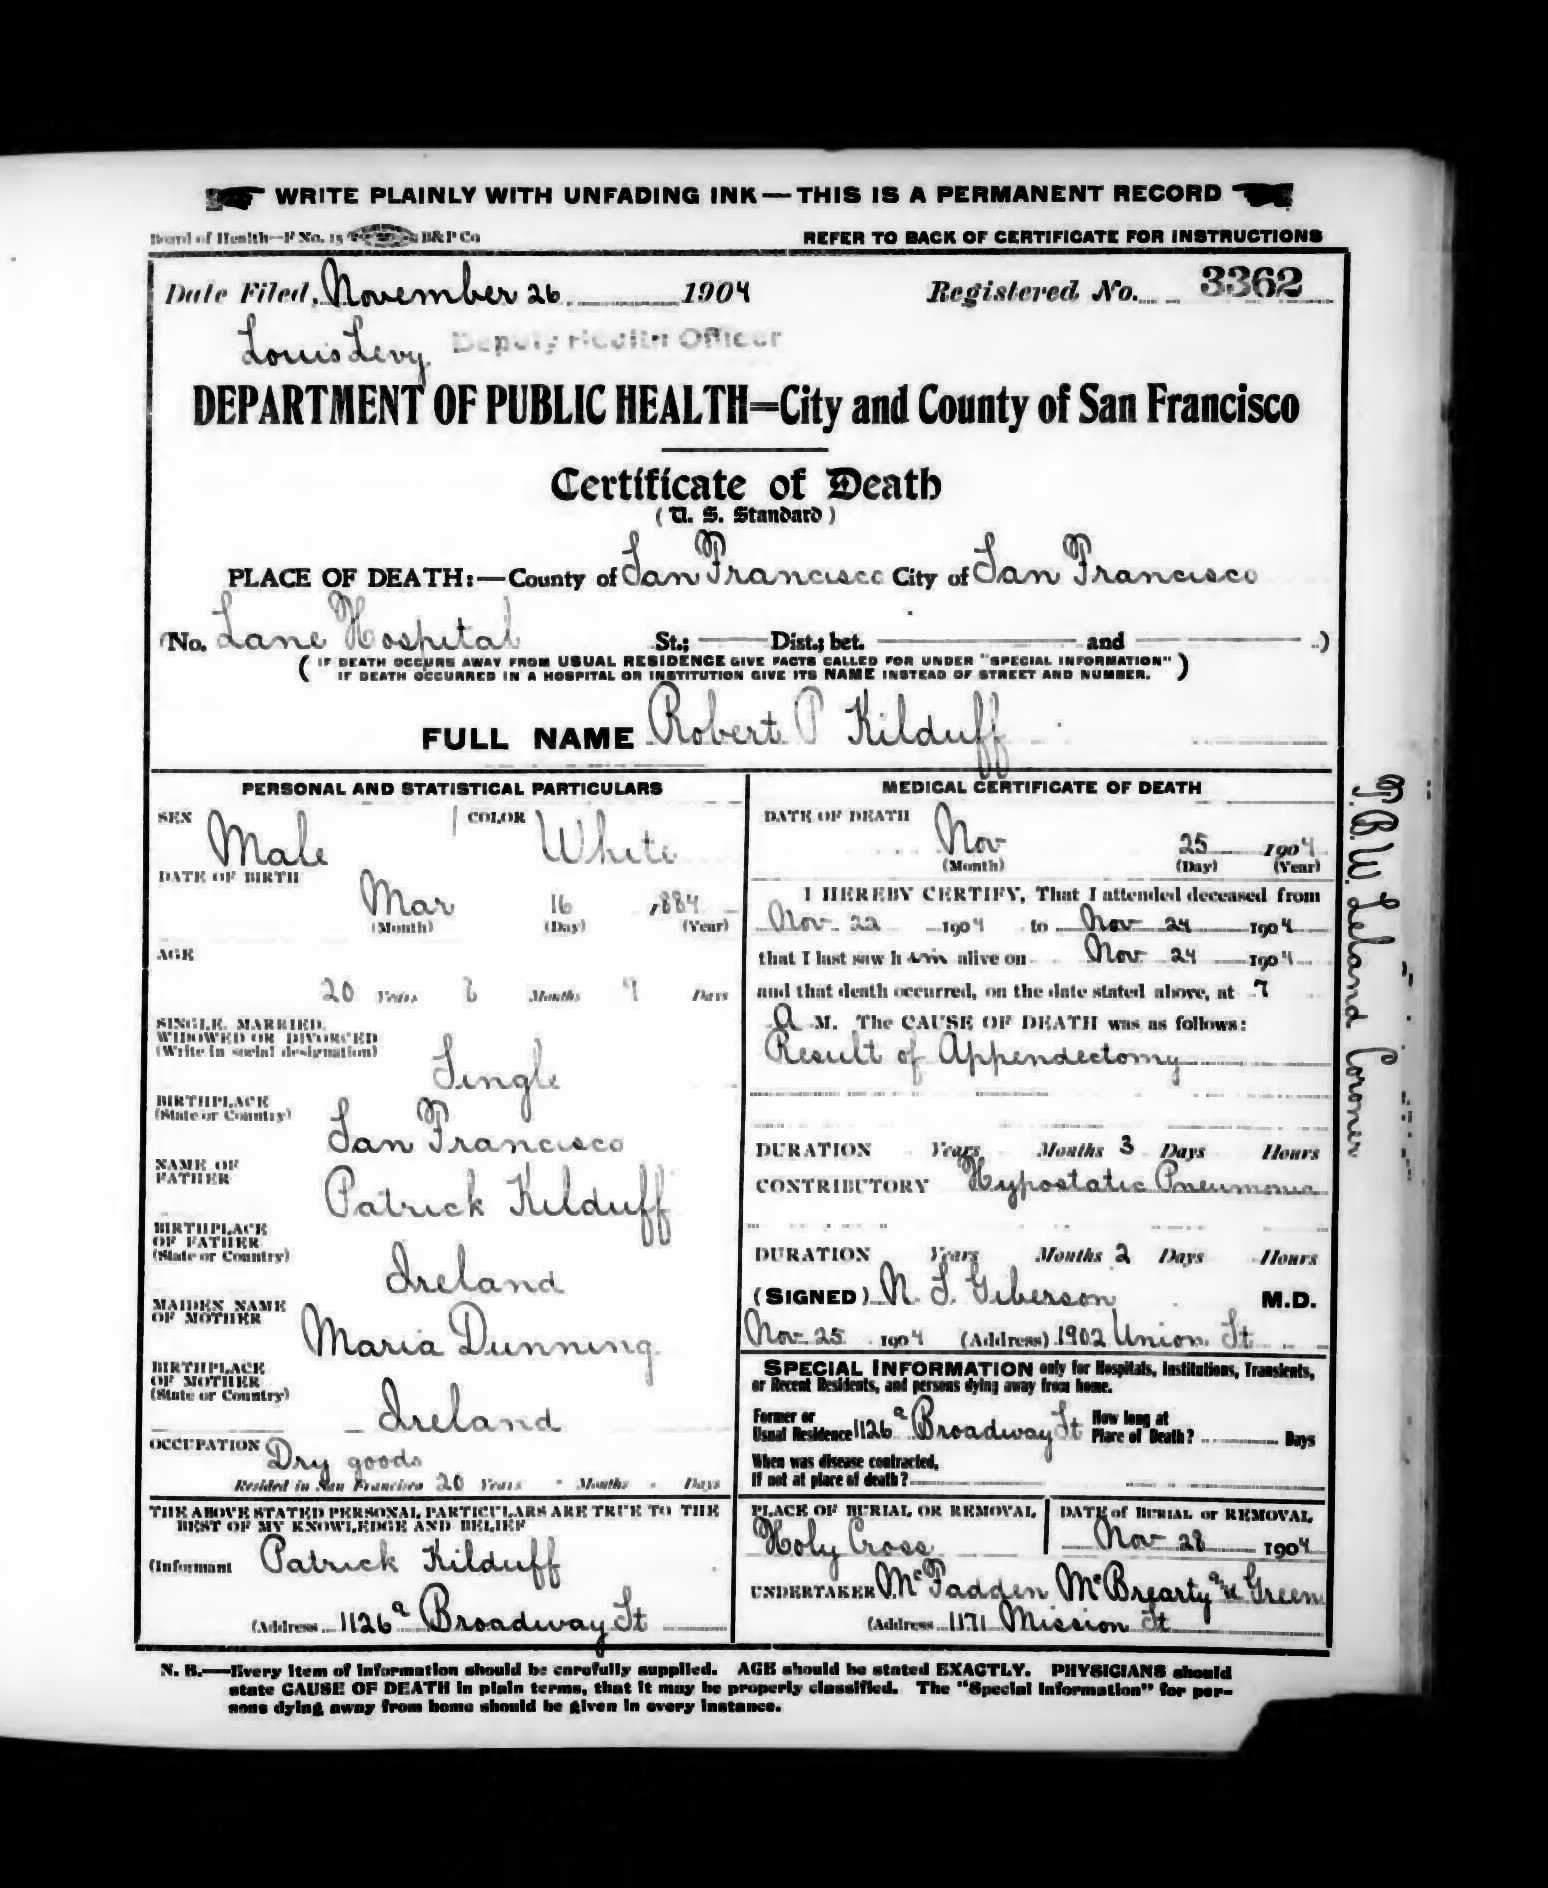 WRITE PLAINLY WITH UNFADING INK—THIS IS A PERMANENT RECORD
Board of Health—F No. 15 B&P Co
REFER TO BACK OF CERTIFICATE FOR INSTRUCTIONS
Date Filed, November 26 1904 Registered No. 3362
Louis Levy Deputy Health Officer
DEPARTMENT OF PUBLIC HEALTH=City and County of San Francisco
Certificate of Death
(U. S. Standard)
PLACE OF DEATH:—County of San Francisco City of San Francisco
(No. Lane Hospital St.; Dist.; bet. and )
(IF DEATH OCCURS AWAY FROM USUAL RESIDENCE GIVE FACTS CALLED FOR UNDER "SPECIAL INFORMATION"
IF DEATH OCCURRED IN A HOSPITAL OR INSTITUTION GIVE ITS NAME INSTEAD OF STREET AND NUMBER.)
FULL NAME Robert P Kilduff
PERSONAL AND STATISTICAL PARTICULARS
SEX Male COLOR White
DATE OF BIRTH
Mar 16 ,884
(Month) (Day) (Year)
AGE
20 Years 8 Months 9 Days
SINGLE, MARRIED,
WIDOWED OR DIVORCED
(Write in social designation)
Single
BIRTHPLACE
(State or Country)
San Francisco
NAME OF
FATHER
Patrick Kilduff
BIRTHPLACE
OF FATHER
(State or Country)
Ireland
MAIDEN NAME
OF MOTHER
Maria Dunning
BIRTHPLACE
OF MOTHER
(State or Country)
Ireland
OCCUPATION Dry goods
Resided in San Francisco 20 Years Months Days
THE ABOVE STATED PERSONAL PARTICULARS ARE TRUE TO THE
BEST OF MY KNOWLEDGE AND BELIEF
(Informant Patrick Kilduff
(Address 1126a Broadway St
MEDICAL CERTIFICATE OF DEATH
DATE OF DEATH
Nov 25 1904
(Month) (Day) (Year)
I HEREBY CERTIFY, That I attended deceased from
Nov 22 1904 to Nov 24 1904
that I last saw h im alive on Nov 24 1904
and that death occurred, on the date stated above, at 7
A M. The CAUSE OF DEATH was as follows:
Result of Appendectomy
DURATION Years Months 3 Days Hours
CONTRIBUTORY Hypostatic Pneumonia
DURATION Years Months 2 Days Hours
(SIGNED) N. S. Giberson M.D.
Nov 25 1904 (Address) 1902 Union St
SPECIAL INFORMATION only for Hospitals, Institutions, Transients,
or Recent Residents, and persons dying away from home.
Former or
Usual Residence 1126a Broadway St How long at
Place of Death? Days
When was disease contracted,
If not at place of death?
PLACE OF BURIAL OR REMOVAL
Holy Cross
DATE of BURIAL or REMOVAL
Nov 28 1904
UNDERTAKER McFadden McBrearty & Green
(Address 1171 Mission St
T.B.W. Leland Coroner
N. B.—Every item of information should be carefully supplied. AGE should be stated EXACTLY. PHYSICIANS should
state CAUSE OF DEATH in plain terms, that it may be properly classified. The "Special Information" for per-
sons dying away from home should be given in every instance.